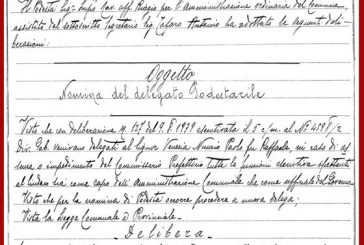 Il Podestà Sig. Biagio per l'amministrazione ordinaria del Comune,
assistito dal sottoscritto Segretario Sig. Antonio ha adottato le seguenti deli-
berazioni:
Oggetto
Nomina del delegato Podestarile
Visto che con deliberazione N. 127 del 9.
venivano delegati al Signor Venezia Nunzio Paolo fu Raffaele, in caso di as-
senza o impedimento del Commissario Prefettizio tutte le funzioni spettanti
al Sindaco sia come capo dell'Amministrazione Comunale che come ufficiale del Governo
Visto che per la nomina di Podestà occorre procedere a nuova delega;
Vista la Legge Comunale e Provinciale.
Delibera